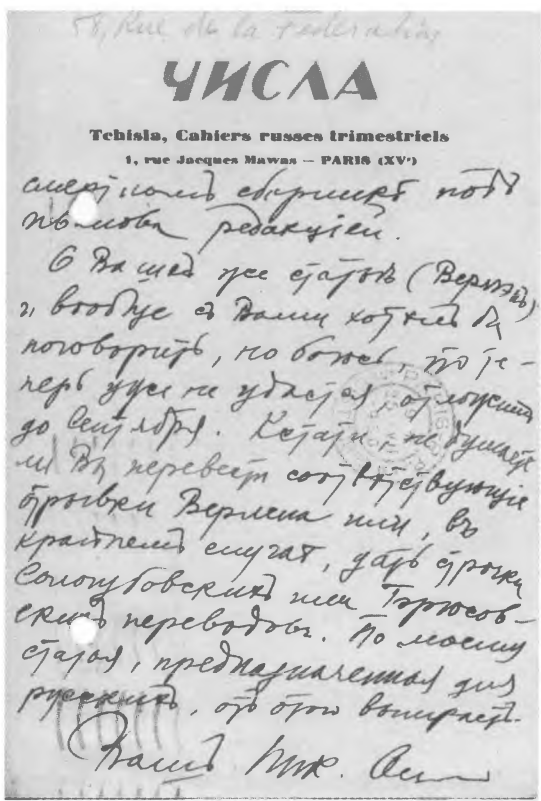 58, Rue de la Federation
ЧИСЛА
Tchisla, Cahiers russes trimestriels
1, rue Jacques Mawas — PARIS (XVᵉ)
сборникъ подъ
редакціей.
О Вашей же статьѣ (Верлэнъ)
и вообще съ Вами хотѣлъ бы
поговорить, но боюсь, что те-
перь уже не удастся отложить
до Сентября. Кстати, не думаете
ли Вы перевести соотвѣтствующіе
отрывки Верлена или, въ
крайнемъ случаѣ, дать строчки
Сологубовскихъ или Брюсов-
скихъ переводовъ. По моему
статья, предназначенная для
русскихъ, отъ этого выиграетъ.
Вашъ Ник.